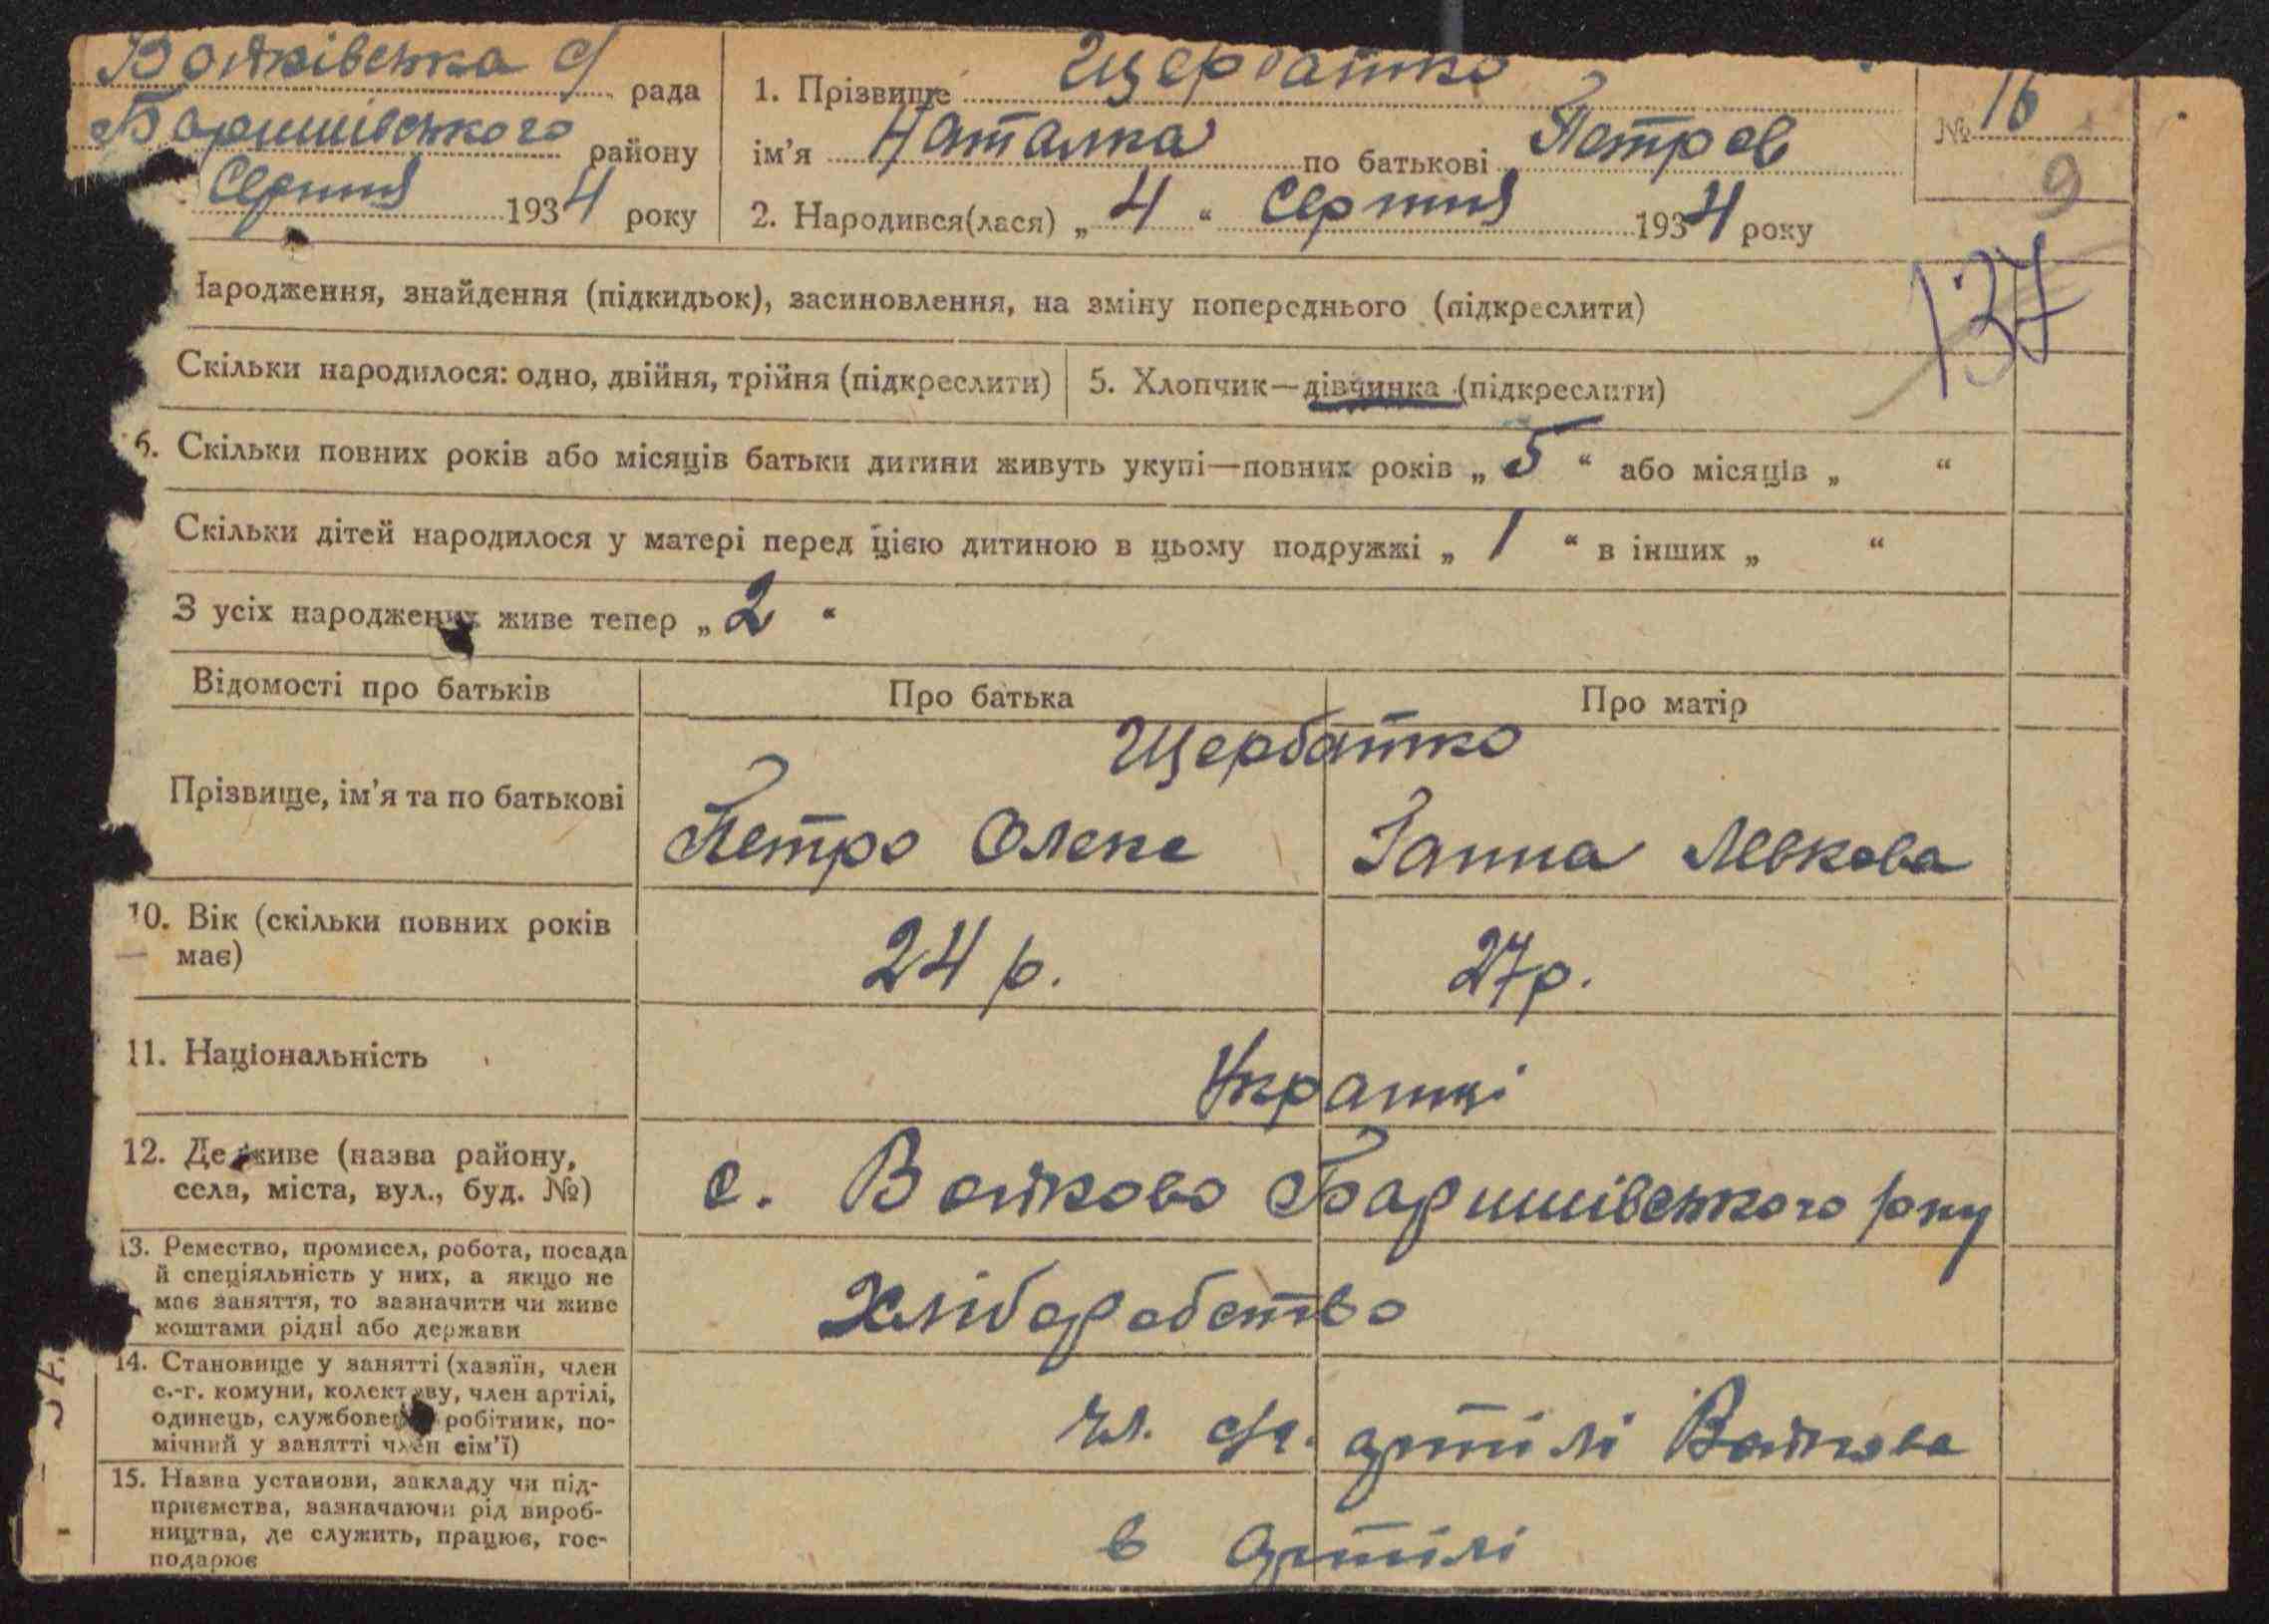 Войківська с/ рада
Баришівського району
Серпня 1934 року
1. Прізвище Щербатко
ім'я Наталка по батькові Петров
2. Народився(лася) „ 4 “ Серпня 1934 року
№ 16
9
137
Народження, знайдення (підкидьок), засиновлення, на зміну попереднього (підкреслити)
Скільки народилося: одно, двійня, трійня (підкреслити)
5. Хлопчик—дівчинка (підкреслити)
6. Скільки повних років або місяців батьки дитини живуть укупі—повних років „ 5 “ або місяців „ “
Скільки дітей народилося у матері перед цією дитиною в цьому подружжі „ 1 “ в інших „ “
З усіх народжених живе тепер „ 2 “
Відомості про батьків
Про батька
Про матір
Прізвище, ім'я та по батькові
Щербатко
Петро Олексе
Ганна Левкова
10. Вік (скільки повних років
має)
24 р.
27р.
11. Національність
Українці
12. Де живе (назва району,
села, міста, вул., буд. №)
с. Войково Баришівського р-ну
13. Ремество, промисел, робота, посада
й спеціяльність у них, а якщо не
має заняття, то зазначити чи живе
коштами рідні або держави
Хліборобство
14. Становище у занятті (хазяїн, член
с.-г. комуни, колективу, член артілі,
одинець, службовець, робітник, по-
мічний у занятті член сім'ї)
чл. с/г. артілі Войкова
15. Назва установи, закладу чи під-
приємства, зазначаючи рід вироб-
ництва, де служить, працює, гос-
подарює
в артілі